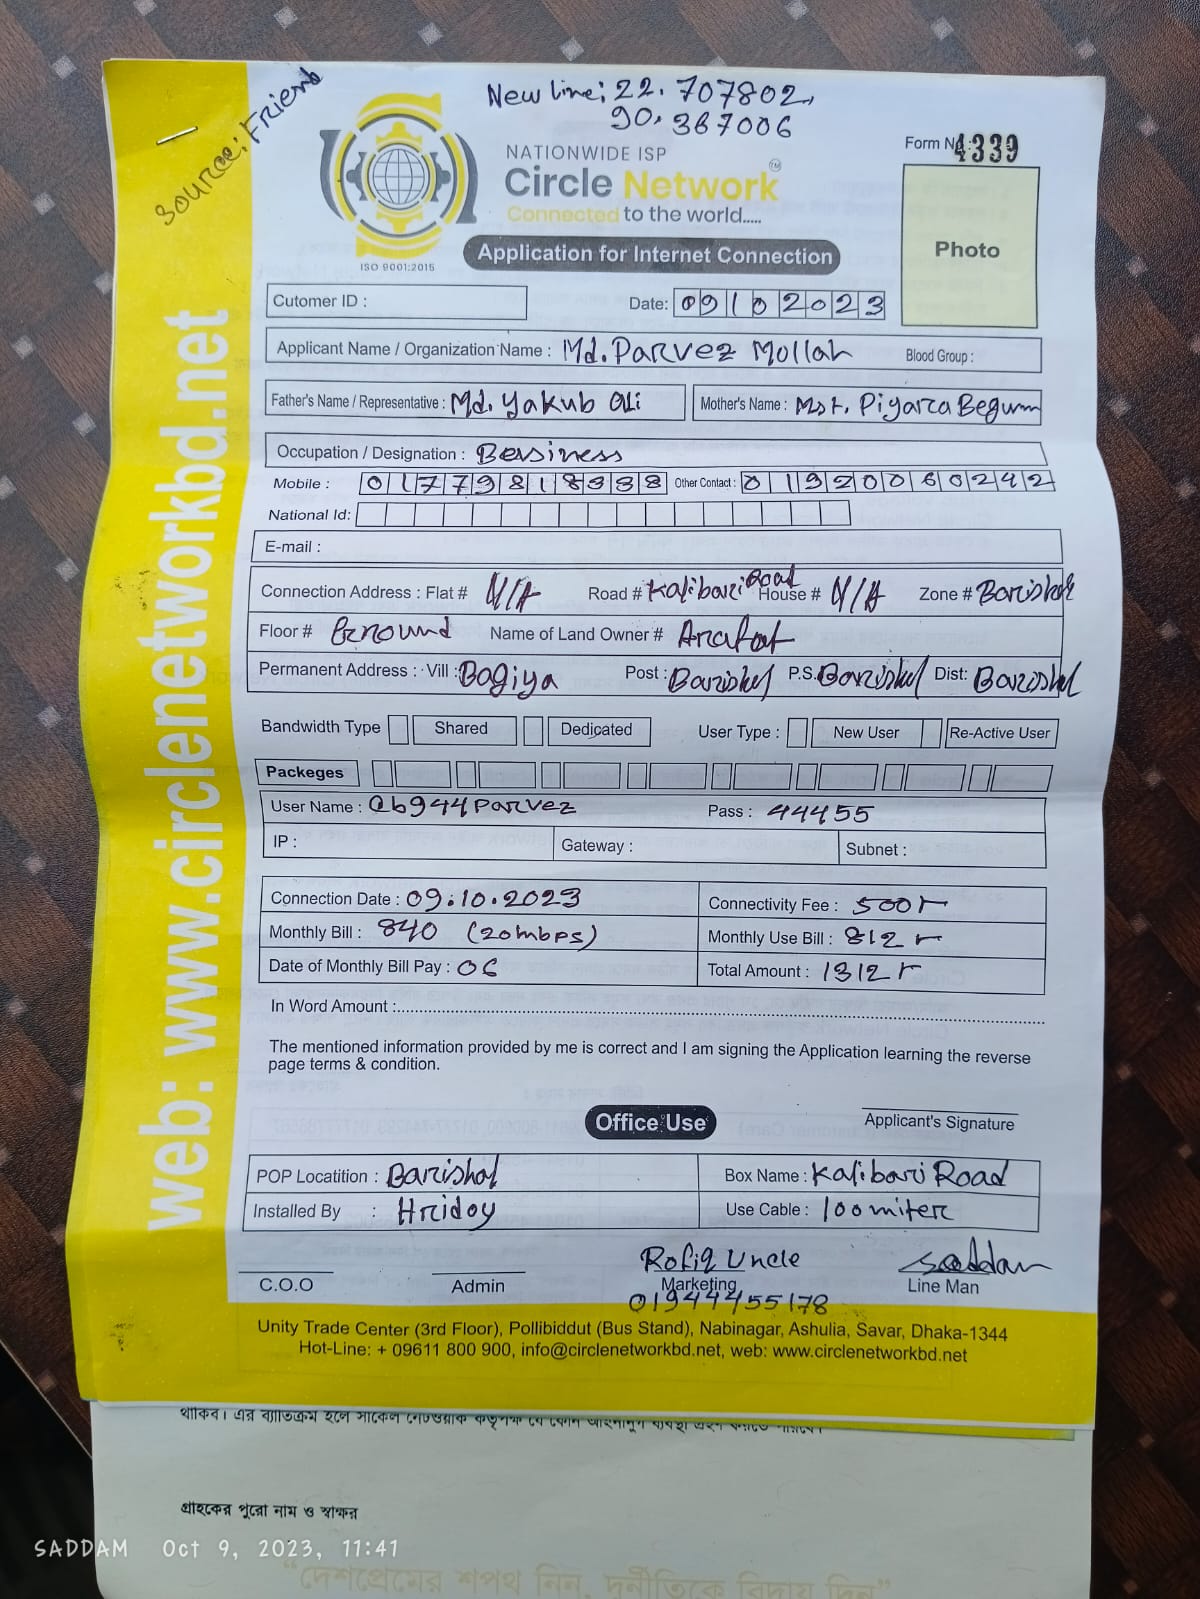 Source: Friend
New line: 22.707802,
90.367006
NATIONWIDE ISP
Circle Network
TM
Connected to the world.....
ISO 9001:2015
Application for Internet Connection
Form No 4339
Photo
Cutomer ID :
Date: 09102023
Applicant Name / Organization Name : Md. Parvez Mollah Blood Group :
Father's Name / Representative : Md. Yakub Ali Mother's Name : Mst. Piyara Begum
Occupation / Designation : Bersiness
Mobile : 01779818338 Other Contact : 01920060242
National Id:
E-mail :
Connection Address : Flat # N/A Road # Kalibari Road House # N/A Zone # Barishal
Floor # Ground Name of Land Owner # Arafat
Permanent Address : Vill : Bagiya Post : Barishal P.S. Barishal Dist: Barishal
Bandwidth Type Shared Dedicated User Type : New User Re-Active User
Packeges
User Name : @b944parvez Pass : 44455
IP : Gateway : Subnet :
Connection Date : 09.10.2023 Connectivity Fee : 500/-
Monthly Bill : 840 (20mbps) Monthly Use Bill : 812/-
Date of Monthly Bill Pay : 06 Total Amount : 1312/-
In Word Amount :
The mentioned information provided by me is correct and I am signing the Application learning the reverse
page terms & condition.
Applicant's Signature
Office Use
POP Locatition : Barishal Box Name : Kalibari Road
Installed By : Hridoy Use Cable : 100 miter
Rofiq Uncle Saddam
C.O.O Admin Marketing Line Man
01944455178
Unity Trade Center (3rd Floor), Pollibiddut (Bus Stand), Nabinagar, Ashulia, Savar, Dhaka-1344
Hot-Line: + 09611 800 900, info@circlenetworkbd.net, web: www.circlenetworkbd.net
web: www.circlenetworkbd.net
গ্রাহকের পুরো নাম ও স্বাক্ষর
SADDAM Oct 9, 2023, 11:41
“দেশপ্রেমের শপথ নিন, দুর্নীতিকে বিদায় দিন”